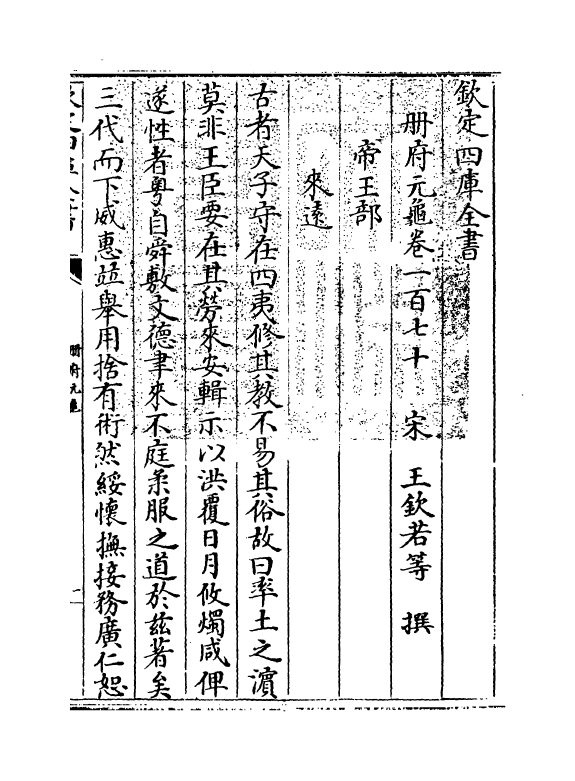 欽定四庫全書
册府元龜卷一百七十　宋　王欽若等　撰
帝王部
來遠
古者天子守在四夷修其教不易其俗故曰率土之濵
莫非王臣要在其勞來安輯示以洪覆日月攸燭咸俾
遂性者粤自舜敷文德聿來不庭柔服之道於兹著矣
三代而下威惠竝舉用捨有術然綏懷撫接務廣仁恕
册府元龜